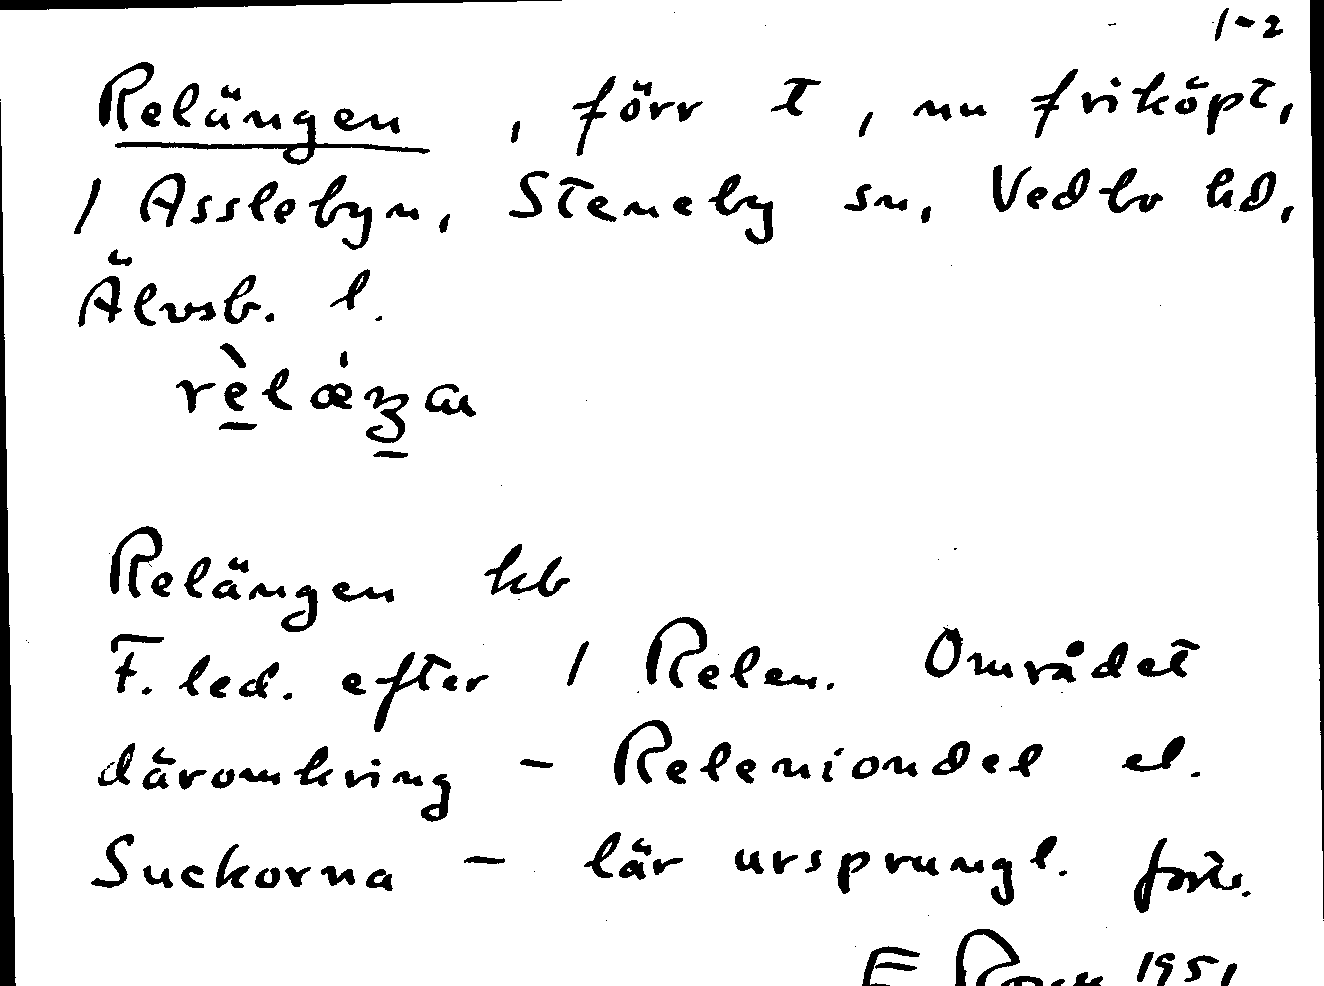 1-2
Relängen, förr t, nu friköpt,
/ Asslebyn, Steneby sn, Vedbo hd,
Älvsb. l.
Relängen kb
F. led. efter / Relen. Området
däromkring – Releniondel el.
Suckorna – lär ursprungl. forts.
E 1951